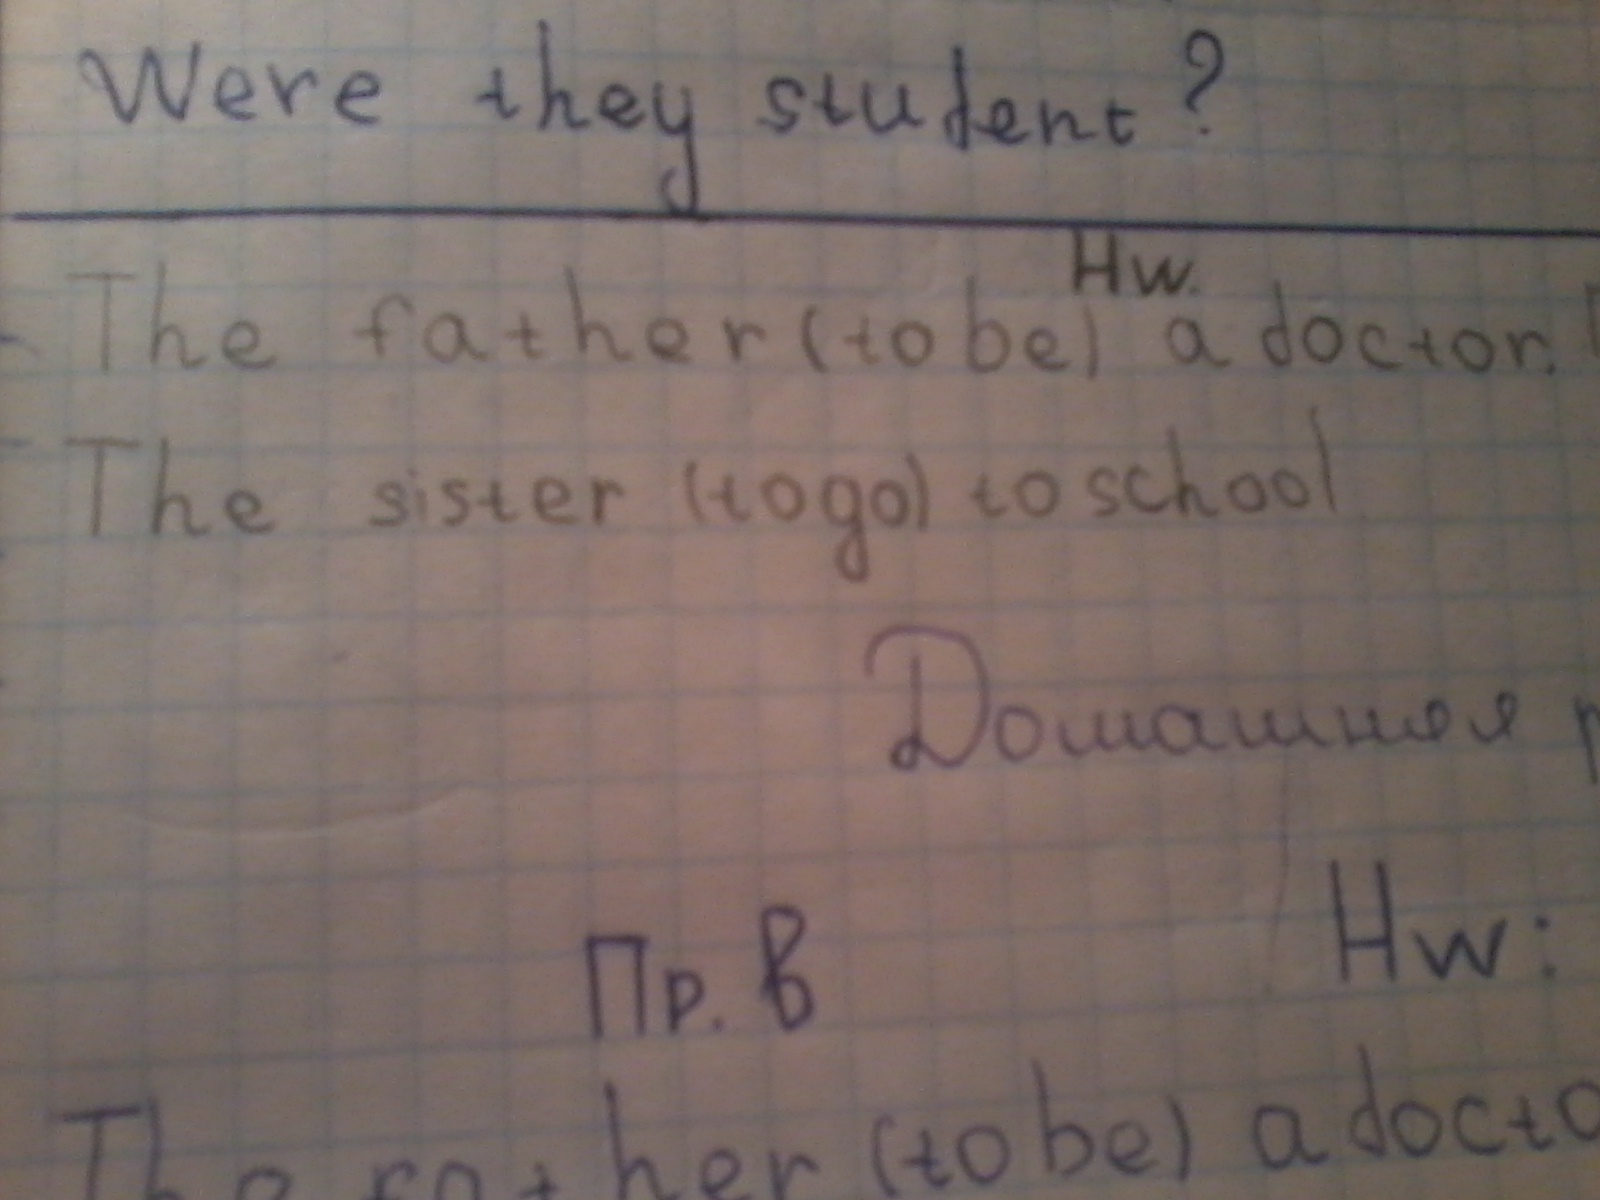 Were they student?
Hw.
The father (to be) a doctor.
The sister (to go) to school
Домашняя
Пр. В
Hw:
The father (to be) a docto